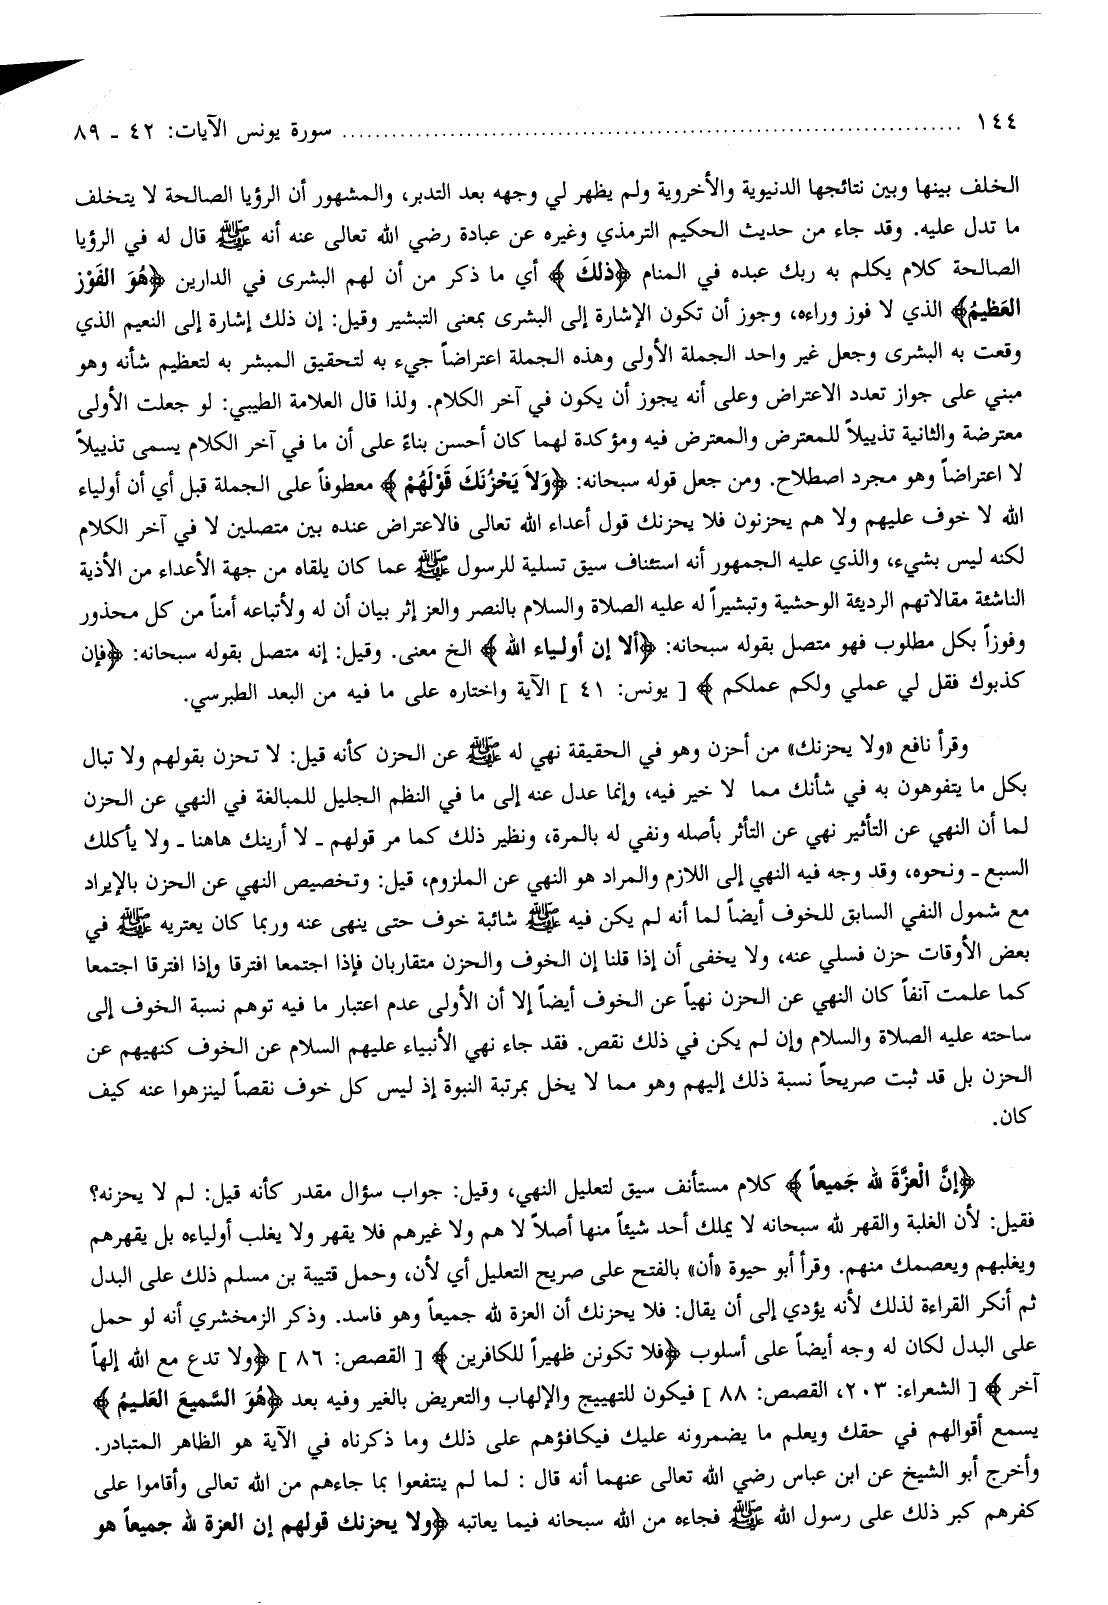 ١٤٤ ........................................................................... سورة يونس الآيات: ٤٢ ـ ٨٩
الخلف بينها وبين نتائجها الدنيوية والأخروية ولم يظهر لي وجهه بعد التدبر، والمشهور أن الرؤيا الصالحة لا يتخلف
ما تدل عليه. وقد جاء من حديث الحكيم الترمذي وغيره عن عبادة رضي الله تعالى عنه أنه ﷺ قال له في الرؤيا
الصالحة كلام يكلم به ربك عبده في المنام ﴿ذلكَ﴾ أي ما ذكر من أن لهم البشرى في الدارين ﴿هُوَ الفَوْز
العَظيمُ﴾ الذي لا فوز وراءه، وجوز أن تكون الإشارة إلى البشرى بمعنى التبشير وقيل: إن ذلك إشارة إلى النعيم الذي
وقعت به البشرى وجعل غير واحد الجملة الأولى وهذه الجملة اعتراضاً جيء به لتحقيق المبشر به لتعظيم شأنه وهو
مبني على جواز تعدد الاعتراض وعلى أنه يجوز أن يكون في آخر الكلام. ولذا قال العلامة الطيبي: لو جعلت الأولى
معترضة والثانية تذييلاً للمعترض والمعترض فيه ومؤكدة لهما كان أحسن بناءً على أن ما في آخر الكلام يسمى تذييلاً
لا اعتراضاً وهو مجرد اصطلاح. ومن جعل قوله سبحانه: ﴿وَلاَ يَحْزُنكَ قَوْلُهُمْ﴾ معطوفاً على الجملة قبل أي أن أولياء
الله لا خوف عليهم ولا هم يحزنون فلا يحزنك قول أعداء الله تعالى فالاعتراض عنده بين متصلين لا في آخر الكلام
لكنه ليس بشيء، والذي عليه الجمهور أنه استئناف سيق تسلية للرسول ﷺ عما كان يلقاه من جهة الأعداء من الأذية
الناشئة مقالاتهم الرديئة الوحشية وتبشيراً له عليه الصلاة والسلام بالنصر والعز إثر بيان أن له ولأتباعه أمناً من كل محذور
وفوزاً بكل مطلوب فهو متصل بقوله سبحانه: ﴿ألا إن أولياء الله﴾ الخ معنى. وقيل: إنه متصل بقوله سبحانه: ﴿فإن
كذبوك فقل لي عملي ولكم عملكم﴾ [ يونس: ٤١ ] الآية واختاره على ما فيه من البعد الطبرسي.
وقرأ نافع «ولا يحزنك» من أحزن وهو في الحقيقة نهي له ﷺ عن الحزن كأنه قيل: لا تحزن بقولهم ولا تبال
بكل ما يتفوهون به في شأنك مما لا خير فيه، وإنما عدل عنه إلى ما في النظم الجليل للمبالغة في النهي عن الحزن
لما أن النهي عن التأثير نهي عن التأثر بأصله ونفي له بالمرة، ونظير ذلك كما مر قولهم ـ لا أرينك هاهنا ـ ولا يأكلك
السبع ـ ونحوه، وقد وجه فيه النهي إلى اللازم والمراد هو النهي عن الملزوم، قيل: وتخصيص النهي عن الحزن بالإيراد
مع شمول النفي السابق للخوف أيضاً لما أنه لم يكن فيه ﷺ شائبة خوف حتى ينهى عنه وربما كان يعتريه ﷺ في
بعض الأوقات حزن فسلي عنه، ولا يخفى أن إذا قلنا إن الخوف والحزن متقاربان فإذا اجتمعا افترقا وإذا افترقا اجتمعا
كما علمت آنفاً كان النهي عن الحزن نهياً عن الخوف أيضاً إلا أن الأولى عدم اعتبار ما فيه توهم نسبة الخوف إلى
ساحته عليه الصلاة والسلام وإن لم يكن في ذلك نقص. فقد جاء نهي الأنبياء عليهم السلام عن الخوف كنهيهم عن
الحزن بل قد ثبت صريحاً نسبة ذلك إليهم وهو مما لا يخل بمرتبة النبوة إذ ليس كل خوف نقصاً لينزهوا عنه كيف
كان.
﴿إنَّ الْعزَّةَ لله جَميعاً﴾ كلام مستأنف سيق لتعليل النهي، وقيل: جواب سؤال مقدر كأنه قيل: لم لا يحزنه؟
فقيل: لأن الغلبة والقهر لله سبحانه لا يملك أحد شيئاً منها أصلاً لا هم ولا غيرهم فلا يقهر ولا يغلب أولياءه بل يقهرهم
ويغلبهم ويعصمك منهم. وقرأ أبو حيوة «أن» بالفتح على صريح التعليل أي لأن، وحمل قتيبة بن مسلم ذلك على البدل
ثم أنكر القراءة لذلك لأنه يؤدي إلى أن يقال: فلا يحزنك أن العزة لله جميعاً وهو فاسد. وذكر الزمخشري أنه لو حمل
على البدل لكان له وجه أيضاً على أسلوب ﴿فلا تكونن ظهيراً للكافرين﴾ [ القصص: ٨٦ ] ﴿ولا تدع مع الله إلهاً
آخر﴾ [ الشعراء: ٢٠٣، القصص: ٨٨ ] فيكون للتهييج والإلهاب والتعريض بالغير وفيه بعد ﴿هُوَ السَّميعَ العَليمُ﴾
يسمع أقوالهم في حقك ويعلم ما يضمرونه عليك فيكافؤهم على ذلك وما ذكرناه في الآية هو الظاهر المتبادر.
وأخرج أبو الشيخ عن ابن عباس رضي الله تعالى عنهما أنه قال : لما لم ينتفعوا بما جاءهم من الله تعالى وأقاموا على
كفرهم كبر ذلك على رسول الله ﷺ فجاءه من الله سبحانه فيما يعاتبه ﴿ولا يحزنك قولهم إن العزة لله جميعاً هو